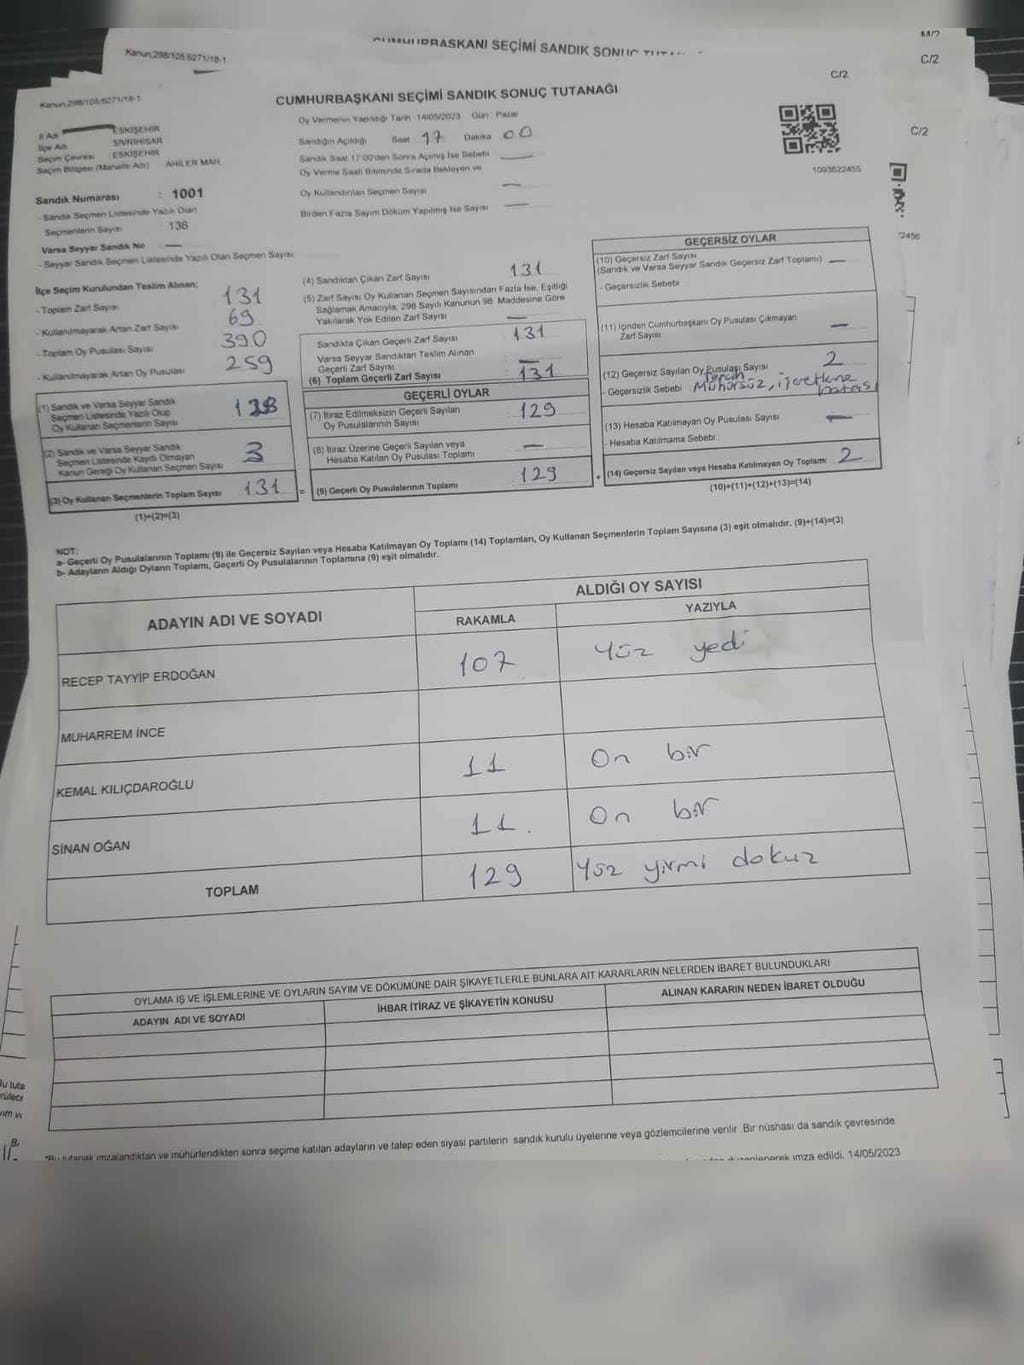 CUMHURBAŞKANI SEÇİMİ SANDIK
Kanun,298/105,6271/18-1
C/2
C/2
Kanun,298/105,6271/18-1
CUMHURBAŞKANI SEÇİMİ SANDIK SONUÇ TUTANAĞI
C/2
İl Adı ESKİŞEHİR
İlçe Adı SİVRİHİSAR
Seçim Çevresi ESKİŞEHİR
Seçim Bölgesi (Mahalle Adı) AHİLER MAH.
Sandık Numarası : 1001
- Sandık Seçmen Listesinde Yazılı Olan
Seçmenlerin Sayısı 136
Varsa Seyyar Sandık No —
- Seyyar Sandık Seçmen Listesinde Yazılı Olan Seçmen Sayısı
Oy Vermenin Yapıldığı Tarih 14/05/2023 Gün Pazar
Sandığın Açıldığı Saat 17 Dakika 00
Sandık Saat 17:00'den Sonra Açılmış İse Sebebi —
Oy Verme Saati Bitiminde Sırada Bekleyen ve
Oy Kullandırılan Seçmen Sayısı —
Birden Fazla Sayım Döküm Yapılmış İse Sayısı —
1093622455
İlçe Seçim Kurulundan Teslim Alınan;
- Toplam Zarf Sayısı 131
- Kullanılmayarak Artan Zarf Sayısı 69
- Toplam Oy Pusulası Sayısı 390
- Kullanılmayarak Artan Oy Pusulası 259
(1) Sandık ve Varsa Seyyar Sandık
Seçmen Listesinde Yazılı Olup
Oy Kullanan Seçmenlerin Sayısı
(2) Sandık ve Varsa Seyyar Sandık
Seçmen Listesinde Kayıtlı Olmayan
Kanun Gereği Oy Kullanan Seçmen Sayısı 3
(3) Oy Kullanan Seçmenlerin Toplam Sayısı 131
(1)+(2)=(3)
(4) Sandıktan Çıkan Zarf Sayısı 131
(5) Zarf Sayısı Oy Kullanan Seçmen Sayısından Fazla İse, Eşitliği
Sağlamak Amacıyla; 298 Sayılı Kanunun 98. Maddesine Göre
Yakılarak Yok Edilen Zarf Sayısı —
Sandıkta Çıkan Geçerli Zarf Sayısı 131
Varsa Seyyar Sandıktan Teslim Alınan
Geçerli Zarf Sayısı —
(6) Toplam Geçerli Zarf Sayısı 131
GEÇERLİ OYLAR
(7) İtiraz Edilmeksizin Geçerli Sayılan
Oy Pusulalarının Sayısı 129
(8) İtiraz Üzerine Geçerli Sayılan veya
Hesaba Katılan Oy Pusulası Toplamı —
= (9) Geçerli Oy Pusulalarının Toplamı 129
GEÇERSİZ OYLAR
(10) Geçersiz Zarf Sayısı
(Sandık ve Varsa Seyyar Sandık Geçersiz Zarf Toplamı) —
- Geçersizlik Sebebi
(11) İçinden Cumhurbaşkanı Oy Pusulası Çıkmayan
Zarf Sayısı —
(12) Geçersiz Sayılan Oy Pusulası Sayısı 2
- Geçersizlik Sebebi Mühürsüz, tercih işaretleme hatası
(13) Hesaba Katılmayan Oy Pusulası Sayısı —
- Hesaba Katılmama Sebebi
+ (14) Geçersiz Sayılan veya Hesaba Katılmayan Oy Toplamı 2
(10)+(11)+(12)+(13)=(14)
NOT:
a- Geçerli Oy Pusulalarının Toplamı (9) ile Geçersiz Sayılan veya Hesaba Katılmayan Oy Toplamı (14) Toplamları, Oy Kullanan Seçmenlerin Toplam Sayısına (3) eşit olmalıdır. (9)+(14)=(3)
b- Adayların Aldığı Oyların Toplamı, Geçerli Oy Pusulalarının Toplamına (9) eşit olmalıdır.
ADAYIN ADI VE SOYADI
ALDIĞI OY SAYISI
RAKAMLA YAZIYLA
RECEP TAYYİP ERDOĞAN 107 Yüz yedi
MUHARREM İNCE
KEMAL KILIÇDAROĞLU 11 On bir
SİNAN OĞAN 11. On bir
TOPLAM 129 Yüz yirmi dokuz
OYLAMA İŞ VE İŞLEMLERİNE VE OYLARIN SAYIM VE DÖKÜMÜNE DAİR ŞİKAYETLERLE BUNLARA AİT KARARLARIN NELERDEN İBARET BULUNDUKLARI
ADAYIN ADI VE SOYADI İHBAR İTİRAZ VE ŞİKAYETİN KONUSU ALINAN KARARIN NEDEN İBARET OLDUĞU
*Bu tutanak imzalandıktan ve mühürlendikten sonra seçime katılan adayların ve talep eden siyasi partilerin sandık kurulu üyelerine veya gözlemcilerine verilir. Bir nüshası da sandık çevresinde
düzenlenerek imza edildi. 14/05/2023